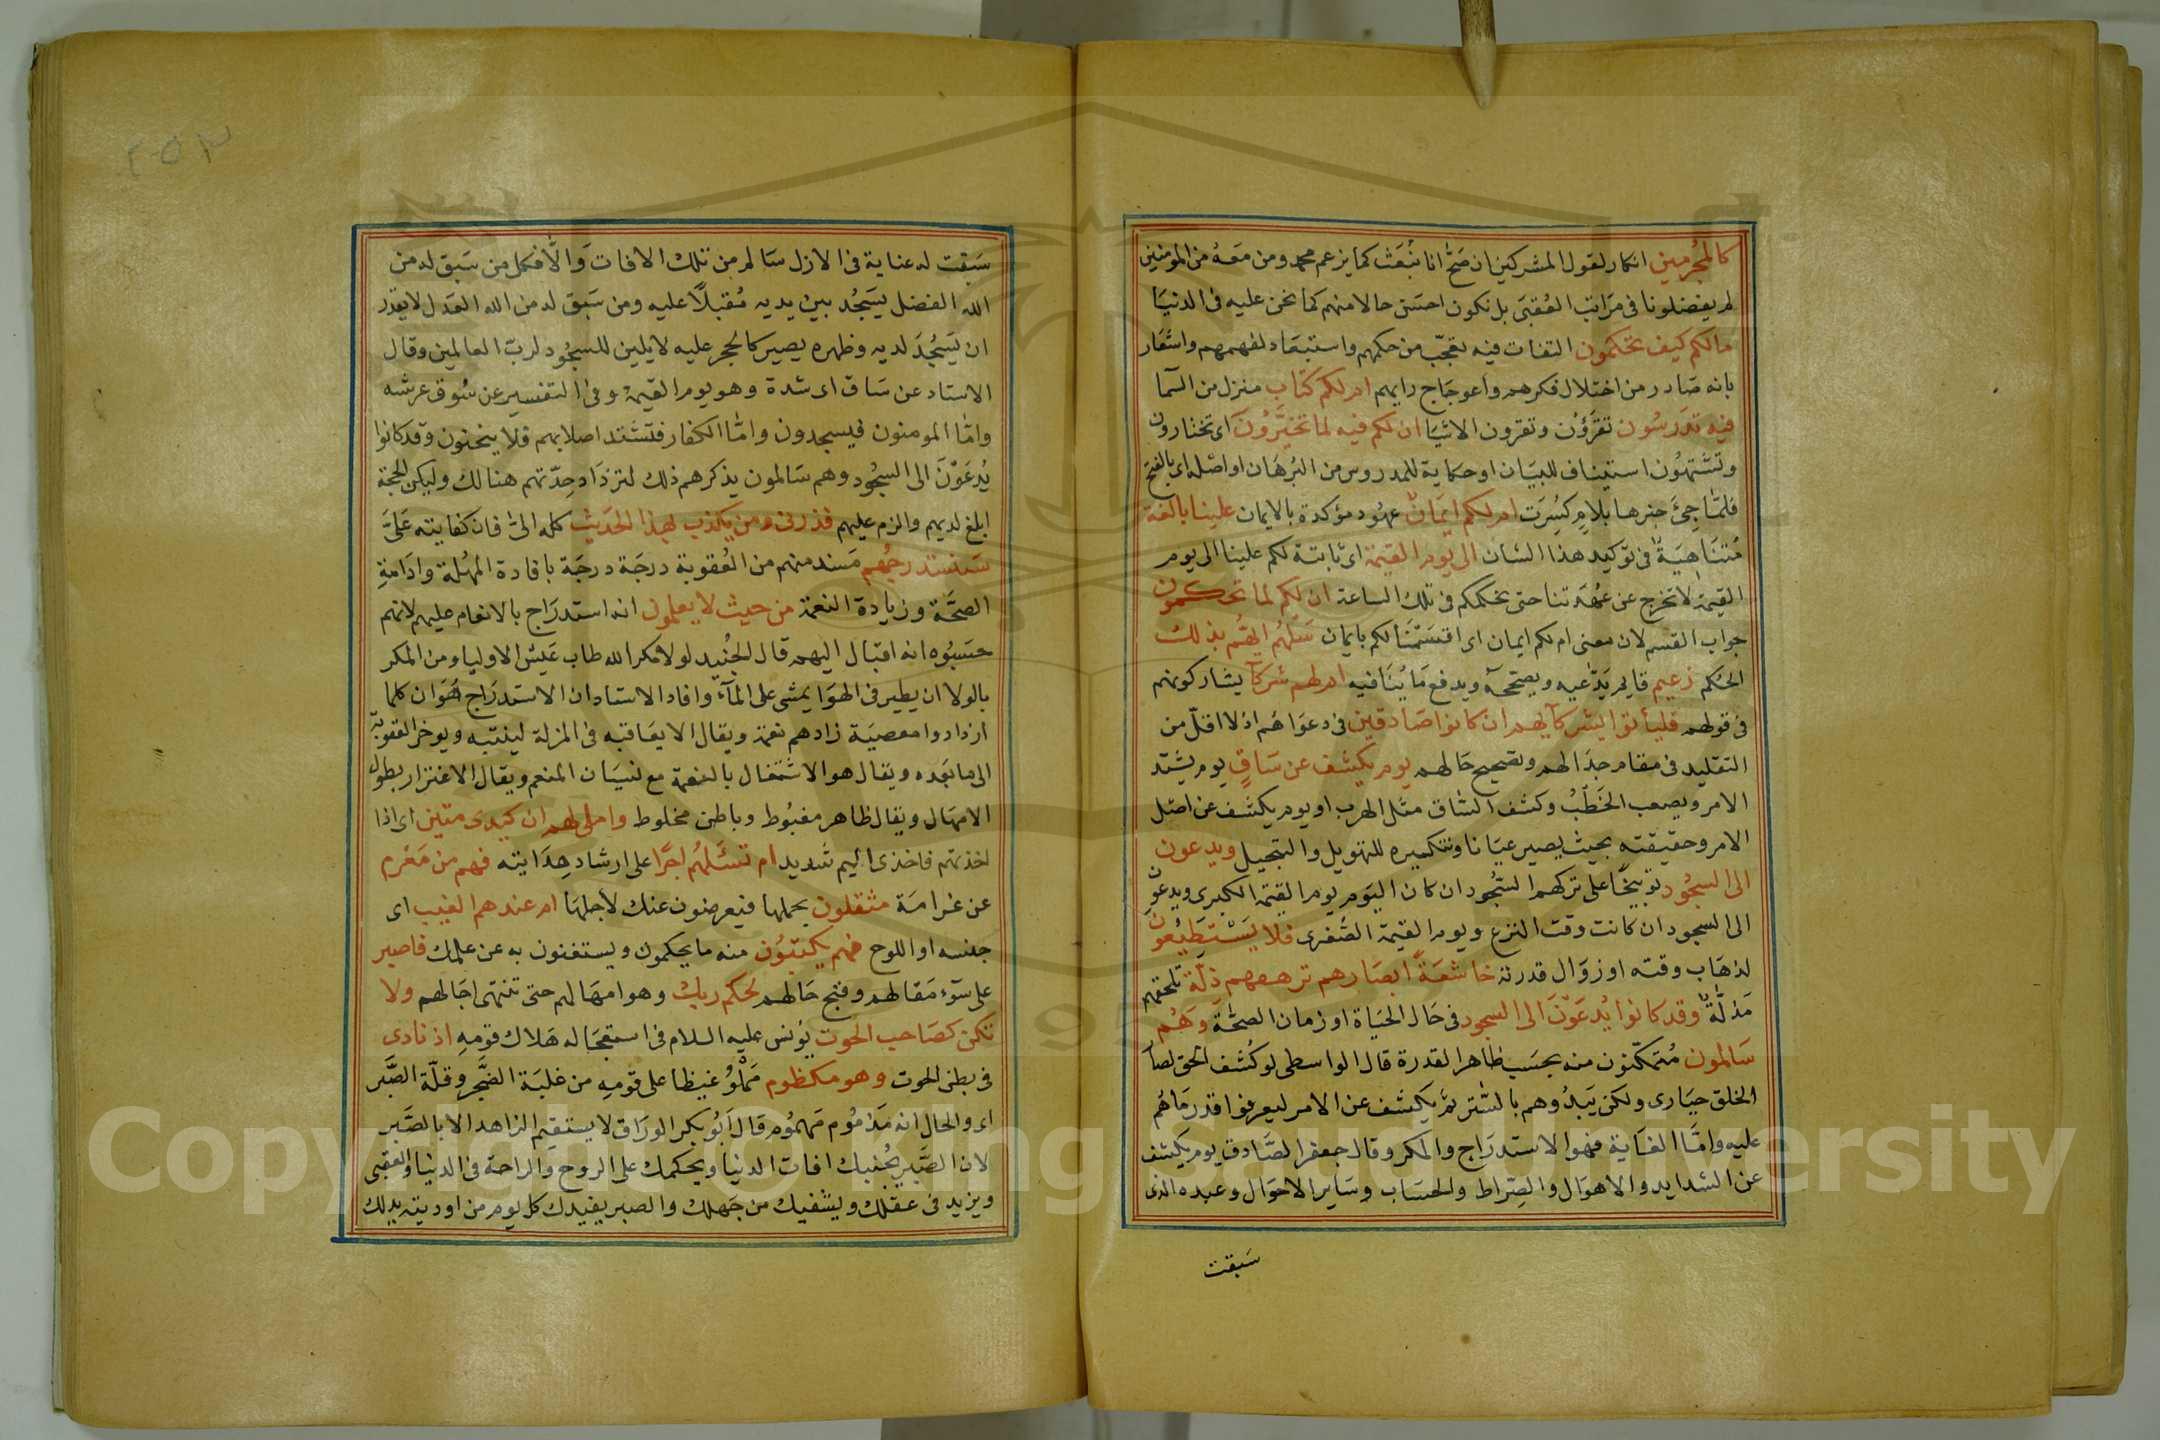 كالمجرمين انكار لقول المشركين ان صَحّ انا نبعَث كما يزعم محمد ومن مَعَهُ من المومنين
لم يفضلونا فى مرَاتب العُقبَى بل نكون احسَن حالا منهم كما نحن عليه فى الدنيَا
مالكم كيف تحكمون التفات فيه تعجّب من حكمهم واستبعَاد لفهمهم واشعَار
بانه صَادر من اختلال فكرهم واعوجَاج رايهم ام لكم كتاب منزل من السّما
فيه تدرسُون تقرَؤن وتقرون الاشيَا ان لكم فيه لما تخيَّرُونَ اى تختارون
وتشتهوُن استيناف للبيَان او حكاية للمدروس من البُرهَان او اصْله اى بالفتح
فلمّا جىَٔ خبرها بلامٍ كسِرَت ام لكم ايمَانٌ عهُود مؤكدة بالايمان علينا بالغة
مُتنَاهِيَةٌ فى توكيد هذا الشان الى يَوم القيمة اى ثابتة لكم علينا الى يوم
القيمة لا تخرج عن عُهدَتنا حتى نحكمكم فى تلك الساعة ان لكم لما تحكمون
جواب القسم لان معنى ام لكم ايمان اى اقسَمْنَا لكم بايمان سَلهُم ايهُم بذلك
الحُكم زعيم قايم يَدّعيه ويصححه ويدفع مَا يُنَافيه ام لهم شركآ يشاركونهم
فى قولهم فليأتوا بشركآيهم ان كانوا صَادقين فى دعوَاهُم اذ لا اقلّ من
التقليد فى مقام جدَالهم وتصحيح حَالهم يوم يكشف عن سَاقٍ يوم يشتدّ
الامر ويصعب الخَطْبُ وكشف السّاق مثل الهرب او يوم يكشف عن اصْل
الامر وحقيقته بحيث يصير عيَانا وتنكيره للتهويل والتبجيل ويدعون
الى السجُود توبيخًا على تركهم السّجُود ان كان اليَوم يوم القيمة الكبرى ويدعَون
الى السجود ان كانت وقت النزع ويوم القيمة الصُغرى فلا يَسْتَطِيُعُونَ
لذهَاب وقته او زوَال قدرته خاشعَةً ابصَارهم ترهقهم ذلّة تلحقهم
مَذلّةٌ وقد كانوا يُدعَوْنَ الى السجود فى حَال الحيَاة او زمان الصحَّة وَهُم
سَالمون مُتمكنون منه بحسَب ظاهر القدرة قال الواسطى لو كُشف الحق لصَا
الخلق حيَارى ولكن يَبدُوهم بالسّتر ثمّ يكشف عن الامر ليعرفوا قدر مَاهُم
عليه وامّا الغَاية فهوا لاستدرَاج والمكر وقال جعفر الصَّادق يوم يكشف
عن الشدايد والاهوَال والصِرّاط والحسَاب وسَاير الاحوَال وعبده الذى
سَبقت
سَبقت له عناية فى الازل سَالم من تلك الافات وَالّا فكل من سَبق له من
الله الفضل يسَجُد بين يديه مُقبلًا عليه ومن سَبق له من الله العَدل لا يقدر
ان يَسجُدَ لديه وظهره يصير كالحجر عليه لا يلين للسجُود لربّ العالمين وقال
الاستاد عن سَاق اى شدة وهو يوم القيمة وفى التفسير عن سُوق عرشه
وامّا المومنون فيسجدون وامّا الكفار فتشتد اصلابهم فلا ينحنون وقد كانوا
يُدعَوْنَ الى السجُود وهم سَالمون يذكرهم ذلك لتزدَاد حِدّتهم هنالك وليكن الحجة
ابلغ لديهم والزم عليهم فذرنى ومن يكذب بهذا الحَديث كله الىّ فان كفايته عَلىَّ
سَنستدرجُهُم مَسندمنهم من العُقوبة درجَة درجَة بافادة المُهلة وادَامةِ
الصحَّة وزيادة النعمَة من حيث لا يعلمون انه استدرَاج بالانعام عليهم لانهم
حسَبُوه انه اقبَال اليهم قال الجُنيد لولا مكر الله طاب عَيش الاولياء ومن المكر
بالولا ان يطير فى الهوَا يمشى على المآء وافاد الاستاد ان الاستدرَاج هُوَان كلما
ازدادوا معصيَة زادهم نعمة ويقال الا يعَاقبه فى المزلة لينتبه ويوخر العقوبةّ
الى ما بَعده ويقال هو الاشتغال بالنعمة مع نسيَان المنعم ويقال الاغترار بطول
الامهَال ويقال ظاهر مغبُوط وباطن مخلوط واملى لهم ان كيدى متين اى اذا
اخذتهم فاخذى اليم شديد ام تسئَلهُم اجرًا على ارشاد هِدَايته فهم من مَغرم
عن غرامَة مثقلون بحملها فيعرضون عنك لأجلهَا ام عندهم الغيب اى
جنسه او اللوح فهم يكتبُون منه ما يحكمون ويستغنون به عن علمك فاصبر
على سَوّء مَقالهم وقبح حَالهم لحكم ربك وهو امهَالهم حتى تنتهى اجَالهم ولا
تكن كصَاحب الحوت يوُنس عليه السلام فى استعجَاله هَلاك قومهِ اذ نادى
فى بطن الحوت وهو مكظوم مَملُوْ غيظا على قومِهِ من غلبَة الضَّجر وقلّة الصَّبر
اى والحال انه مَذمُوم مَهمُوم قال اَبُو بكر الورَاق لا يستقيم الزاهد الا بالصَّبر
لان الصَّبر يجُنبك افات الدنيا ويحكمك على الروح والراحة فى الدنيا والعقبى
ويزيد فى عقلك ويشفيك من جَهلك والصبر يفيدك كل يوم من اوديته بدلك
٢٥٣
Copyright © King Saud University